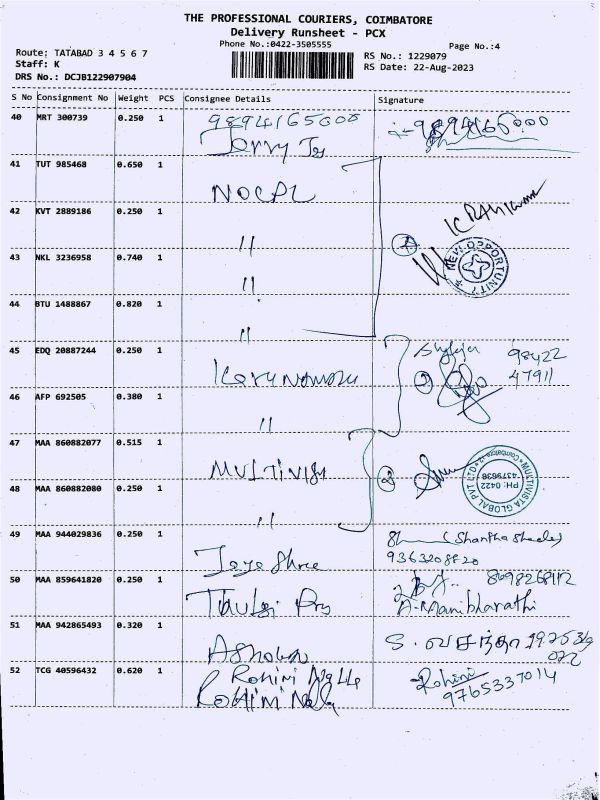 THE PROFESSIONAL COURIERS, COIMBATORE
Delivery Runsheet - PCX
Phone No.:0422-3505555
Page No.:4
Route: TATABAD 3 4 5 6 7
Staff: K
DRS No.: DCJB122907904
RS No.: 1229079
RS Date: 22-Aug-2023
S No Consignment No Weight PCS Consignee Details Signature
40 MRT 300739 0.250 1 9894165000 9894165000
Jerry
41 TUT 985468 0.650 1
NOCPL
42 KVT 2889186 0.250 1 "
43 NKL 3236958 0.740 1 "
NEW OPPORTUNITY
44 BTU 1488867 0.820 1 "
45 EDQ 20887244 0.250 1 98422
47911
46 AFP 692505 0.380 1 "
47 MAA 860882077 0.515 1
MUKTIVISTA GLOBAL PVT LTD
Coimbatore
PH: 0422
4379636
48 MAA 860882080 0.250 1 "
49 MAA 944029836 0.250 1 (Shantha Sheela)
Jaya Shree 9363208820
50 MAA 859641820 0.250 1
Thulsi A-Manibharathi
51 MAA 942865493 0.320 1 S. வசந்தா
Ashokan
52 TCG 40596432 0.620 1 Rohini Rohini
Rohini 9765337014